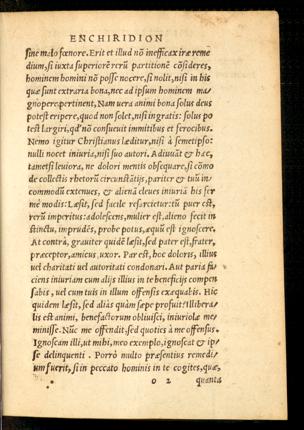 ENCHIRIDION
sine malo fœnore. Erit et illud nõ inefficax iræ reme
dium, si iuxta superiorē rerũ partitionē cõsideres,
hominem homini nõ posse nocere, si nolit, nisi in his
quæ sunt extraria bona, nec ad ipsum hominem ma/
gnopere pertinent, Nam uera animi bona solus deus
potest eripere, quod non solet, nisi ingratis: solus po
test largiri, qd' nõ consueuit immitibus et ferocibus.
Nemo igitur Christianus læditur, nisi à semetipso:
nulli nocet iniuria, nisi suo autori. Adiuuãt & hæc,
tametsi leuiora, ne dolori mentis obsequare, si cõmo
de collectis rhetorũ circunstãtijs, pariter & tuũ in/
commodũ extenues, & alienã eleues iniuriã his fer
mè modis: Læsit, sed facile resarcietur: tũ puer est,
rerũ imperitus: adolescens, mulier est, alieno fecit in
stinctu, imprudēs, probe potus, æquũ est ignoscere.
At contrà, grauiter quidē læsit, sed pater est, frater,
præceptor, amicus, uxor. Par est, hoc doloris, illius
uel charitati uel autoritati condonari. Aut paria fa/
ciens iniuriam cum alijs illius in te beneficijs compen
sabis, uel cum tuis in illum offensis exæquabis. Hic
quidem læsit, sed aliàs quàm sæpe profuit? Illibera/
lis est animi, benefactorum obliuisci, iniuriolæ me/
minisse. Nũc me offendit, sed quoties à me offensus.
Ignoscam illi, ut mihi, meo exemplo, ignoscat & ip/
se delinquenti. Porrò multo præsentius remedi/
um fuerit, si in peccato hominis in te cogites, quæ,
o 2 quanta